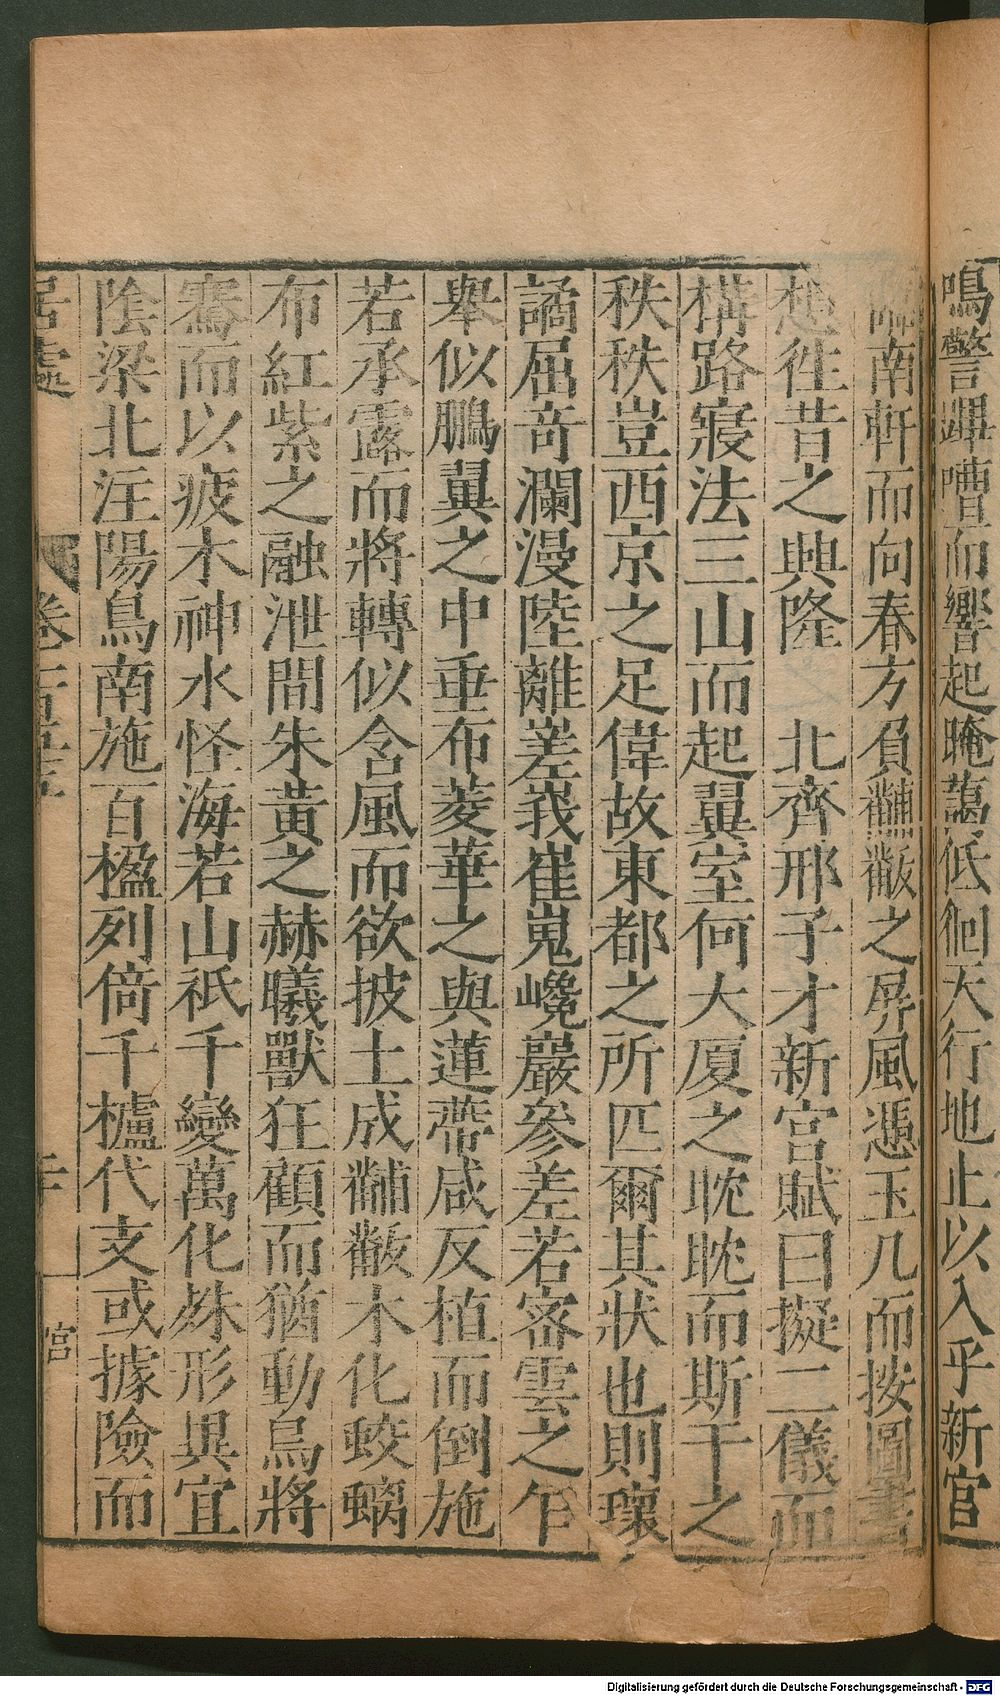 鳴警蹕嘈而響起晻藹低徊天行地止以入乎新宮
南軒而向春方負黼黻之屏風憑玉几而按圖書
想徃昔之興隆　北齊邢子才新宮賦曰擬二儀而
構路寢法三山而起翼室何大厦之眈眈而斯干之
秩秩豈西京之足偉故東都之所匹爾其狀也則瓌
譎屈奇瀾漫陸離嵳峩崔嵬巉巖參差若密雲之乍
舉似鵬翼之中垂布菱華之與蓮蔕咸反植而倒施
若承露而將轉似含風而欲披土成黼黻木化蛟螭
布紅紫之融泄間朱黃之赫曦獸狂顧而猶動烏將
騫而以疲木神水怪海若山祇千變萬化殊形異宜
陰梁北注陽鳥南施百楹列倚千櫨代支或據險而
居處　卷一百五十五　二十　宮
Digitalisierung gefördert durch die Deutsche Forschungsgemeinschaft - DFG